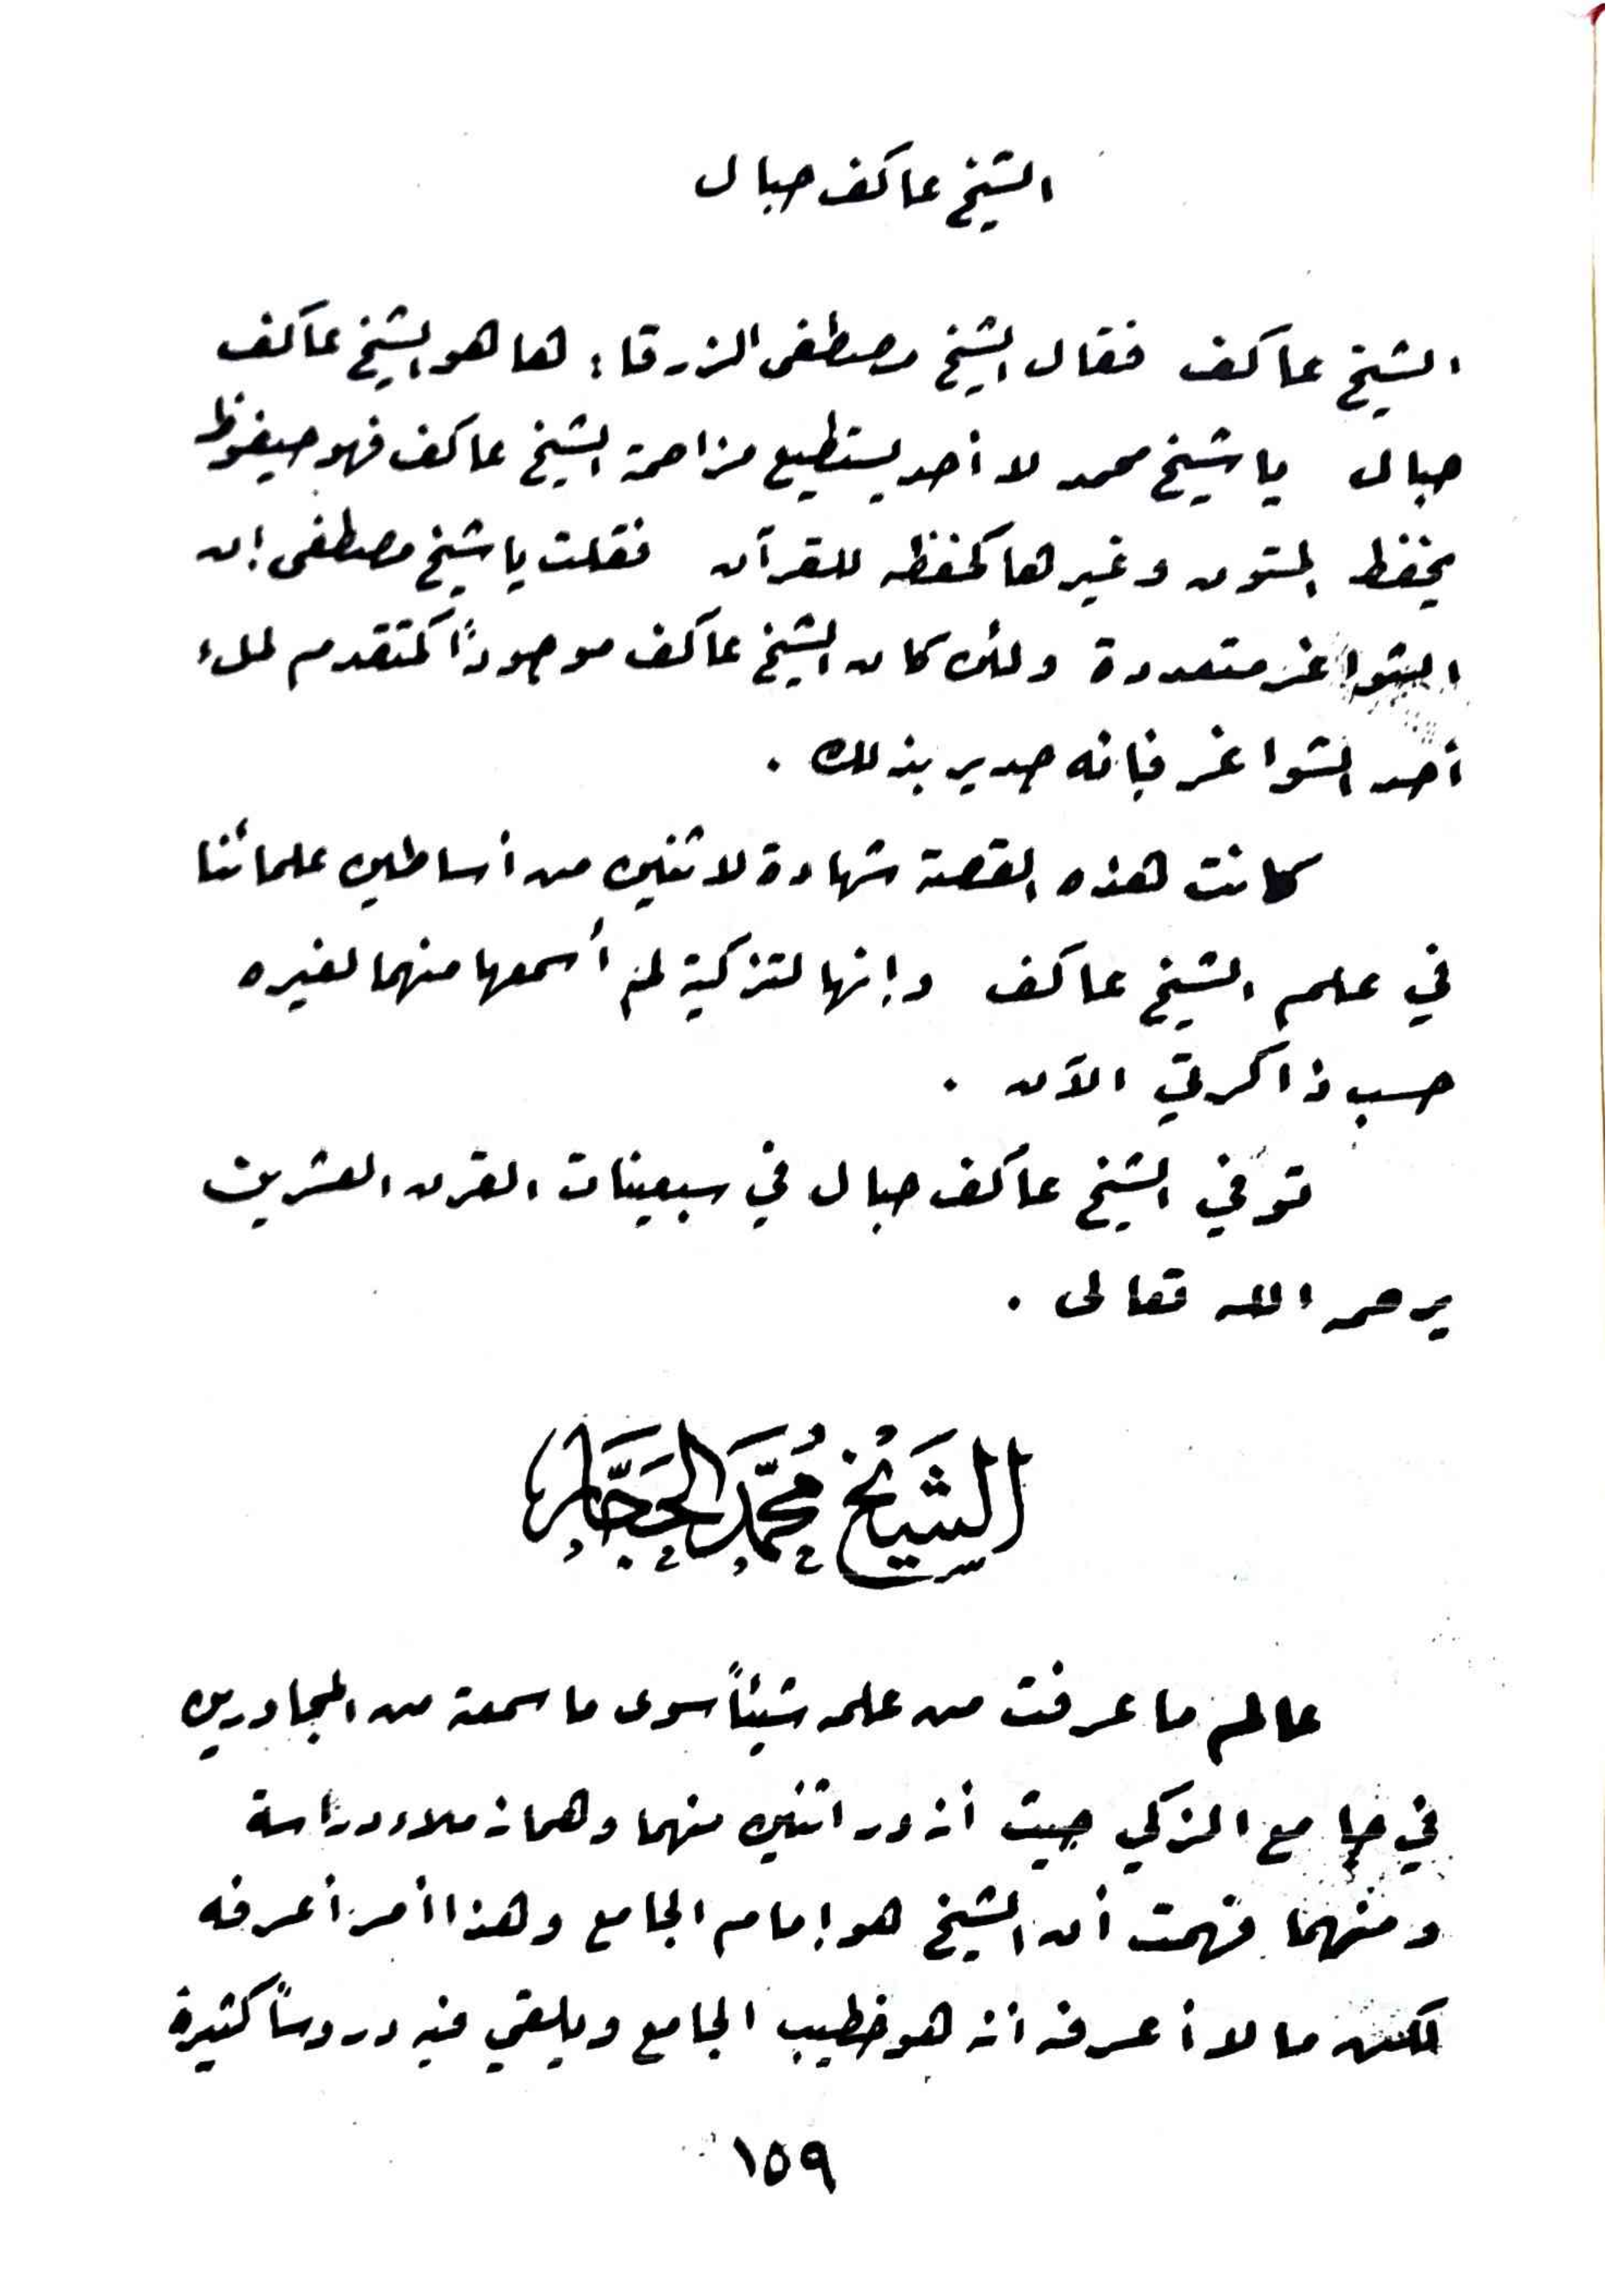 الشيخ عاكف جبال
الشيخ عاكف فقال الشيخ مصطفى الزرقا: ها هو الشيخ عاكف
جبال يا شيخ محمد لا أحد يستطيع مزاحمة الشيخ عاكف فهو حيفوظ
يحفظ المتون وغيرها كحفظه للقرآن فقلت يا شيخ مصطفى إن
الشواغر متعددة ولئن كان الشيخ عاكف موجوداً كمتقدم لملء
أحد الشواغر فإنه جدير بذلك .
كانت هذه القصة شهادة لاثنين من أساطين علمائنا
في علم الشيخ عاكف وإنها لتزكية لم أسمعها منهما لغيره
حسب ذاكرتي الآن .
توفي الشيخ عاكف جبال في سبعينات القرن العشرين
يرحمه الله تعالى .
الشَيْخ مُحَمَّد الحَجَّار
عالم ما عرفت من علمه شيئاً سوى ما سمعة من المجاورين
في جامع الزكي حيث أزور اثنين منهما وهما زملاء دراسة
ومنهما فهمت أن الشيخ هو إمام الجامع وهذا أمر أعرفه
لكن ما لا أعرفه أنه هو خطيب الجامع ويلقي فيه دروساً كثيرة
١٥٩